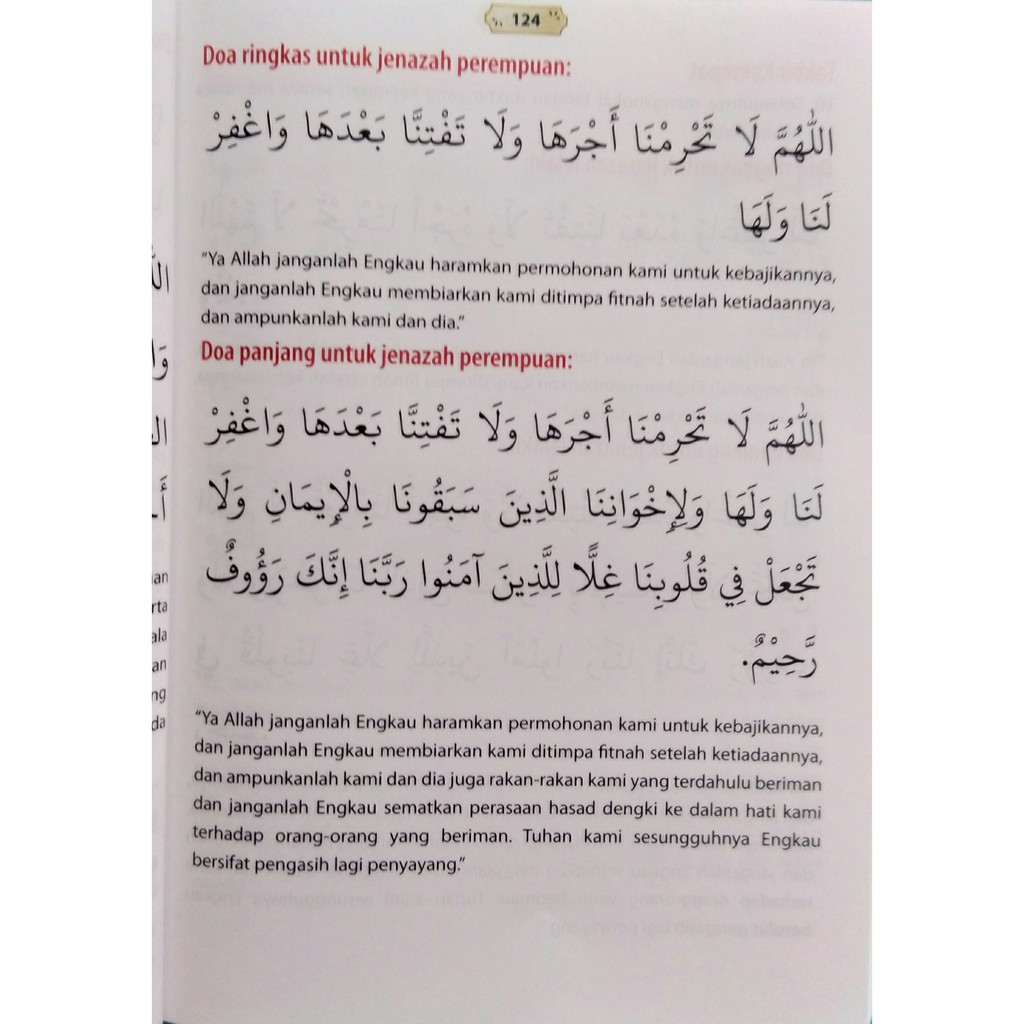 124
Doa ringkas untuk jenazah perempuan:
اللَّهُمَّ لَا تَحْرِمْنَا أَجْرَهَا وَلَا تَفْتِنَّا بَعْدَهَا وَاغْفِرْ
لَنَا وَلَهَا
"Ya Allah janganlah Engkau haramkan permohonan kami untuk kebajikannya,
dan janganlah Engkau membiarkan kami ditimpa fitnah setelah ketiadaannya,
dan ampunkanlah kami dan dia."
Doa panjang untuk jenazah perempuan:
اللَّهُمَّ لَا تَحْرِمْنَا أَجْرَهَا وَلَا تَفْتِنَّا بَعْدَهَا وَاغْفِرْ
لَنَا وَلَهَا وَلِإِخْوَانِنَا الَّذِينَ سَبَقُونَا بِالْإِيمَانِ وَلَا
تَجْعَلْ فِي قُلُوبِنَا غِلًّا لِلَّذِينَ آمَنُوا رَبَّنَا إِنَّكَ رَؤُوفٌ
رَّحِيْمٌ.
"Ya Allah janganlah Engkau haramkan permohonan kami untuk kebajikannya,
dan janganlah Engkau membiarkan kami ditimpa fitnah setelah ketiadaannya,
dan ampunkanlah kami dan dia juga rakan-rakan kami yang terdahulu beriman
dan janganlah Engkau sematkan perasaan hasad dengki ke dalam hati kami
terhadap orang-orang yang beriman. Tuhan kami sesungguhnya Engkau
bersifat pengasih lagi penyayang."